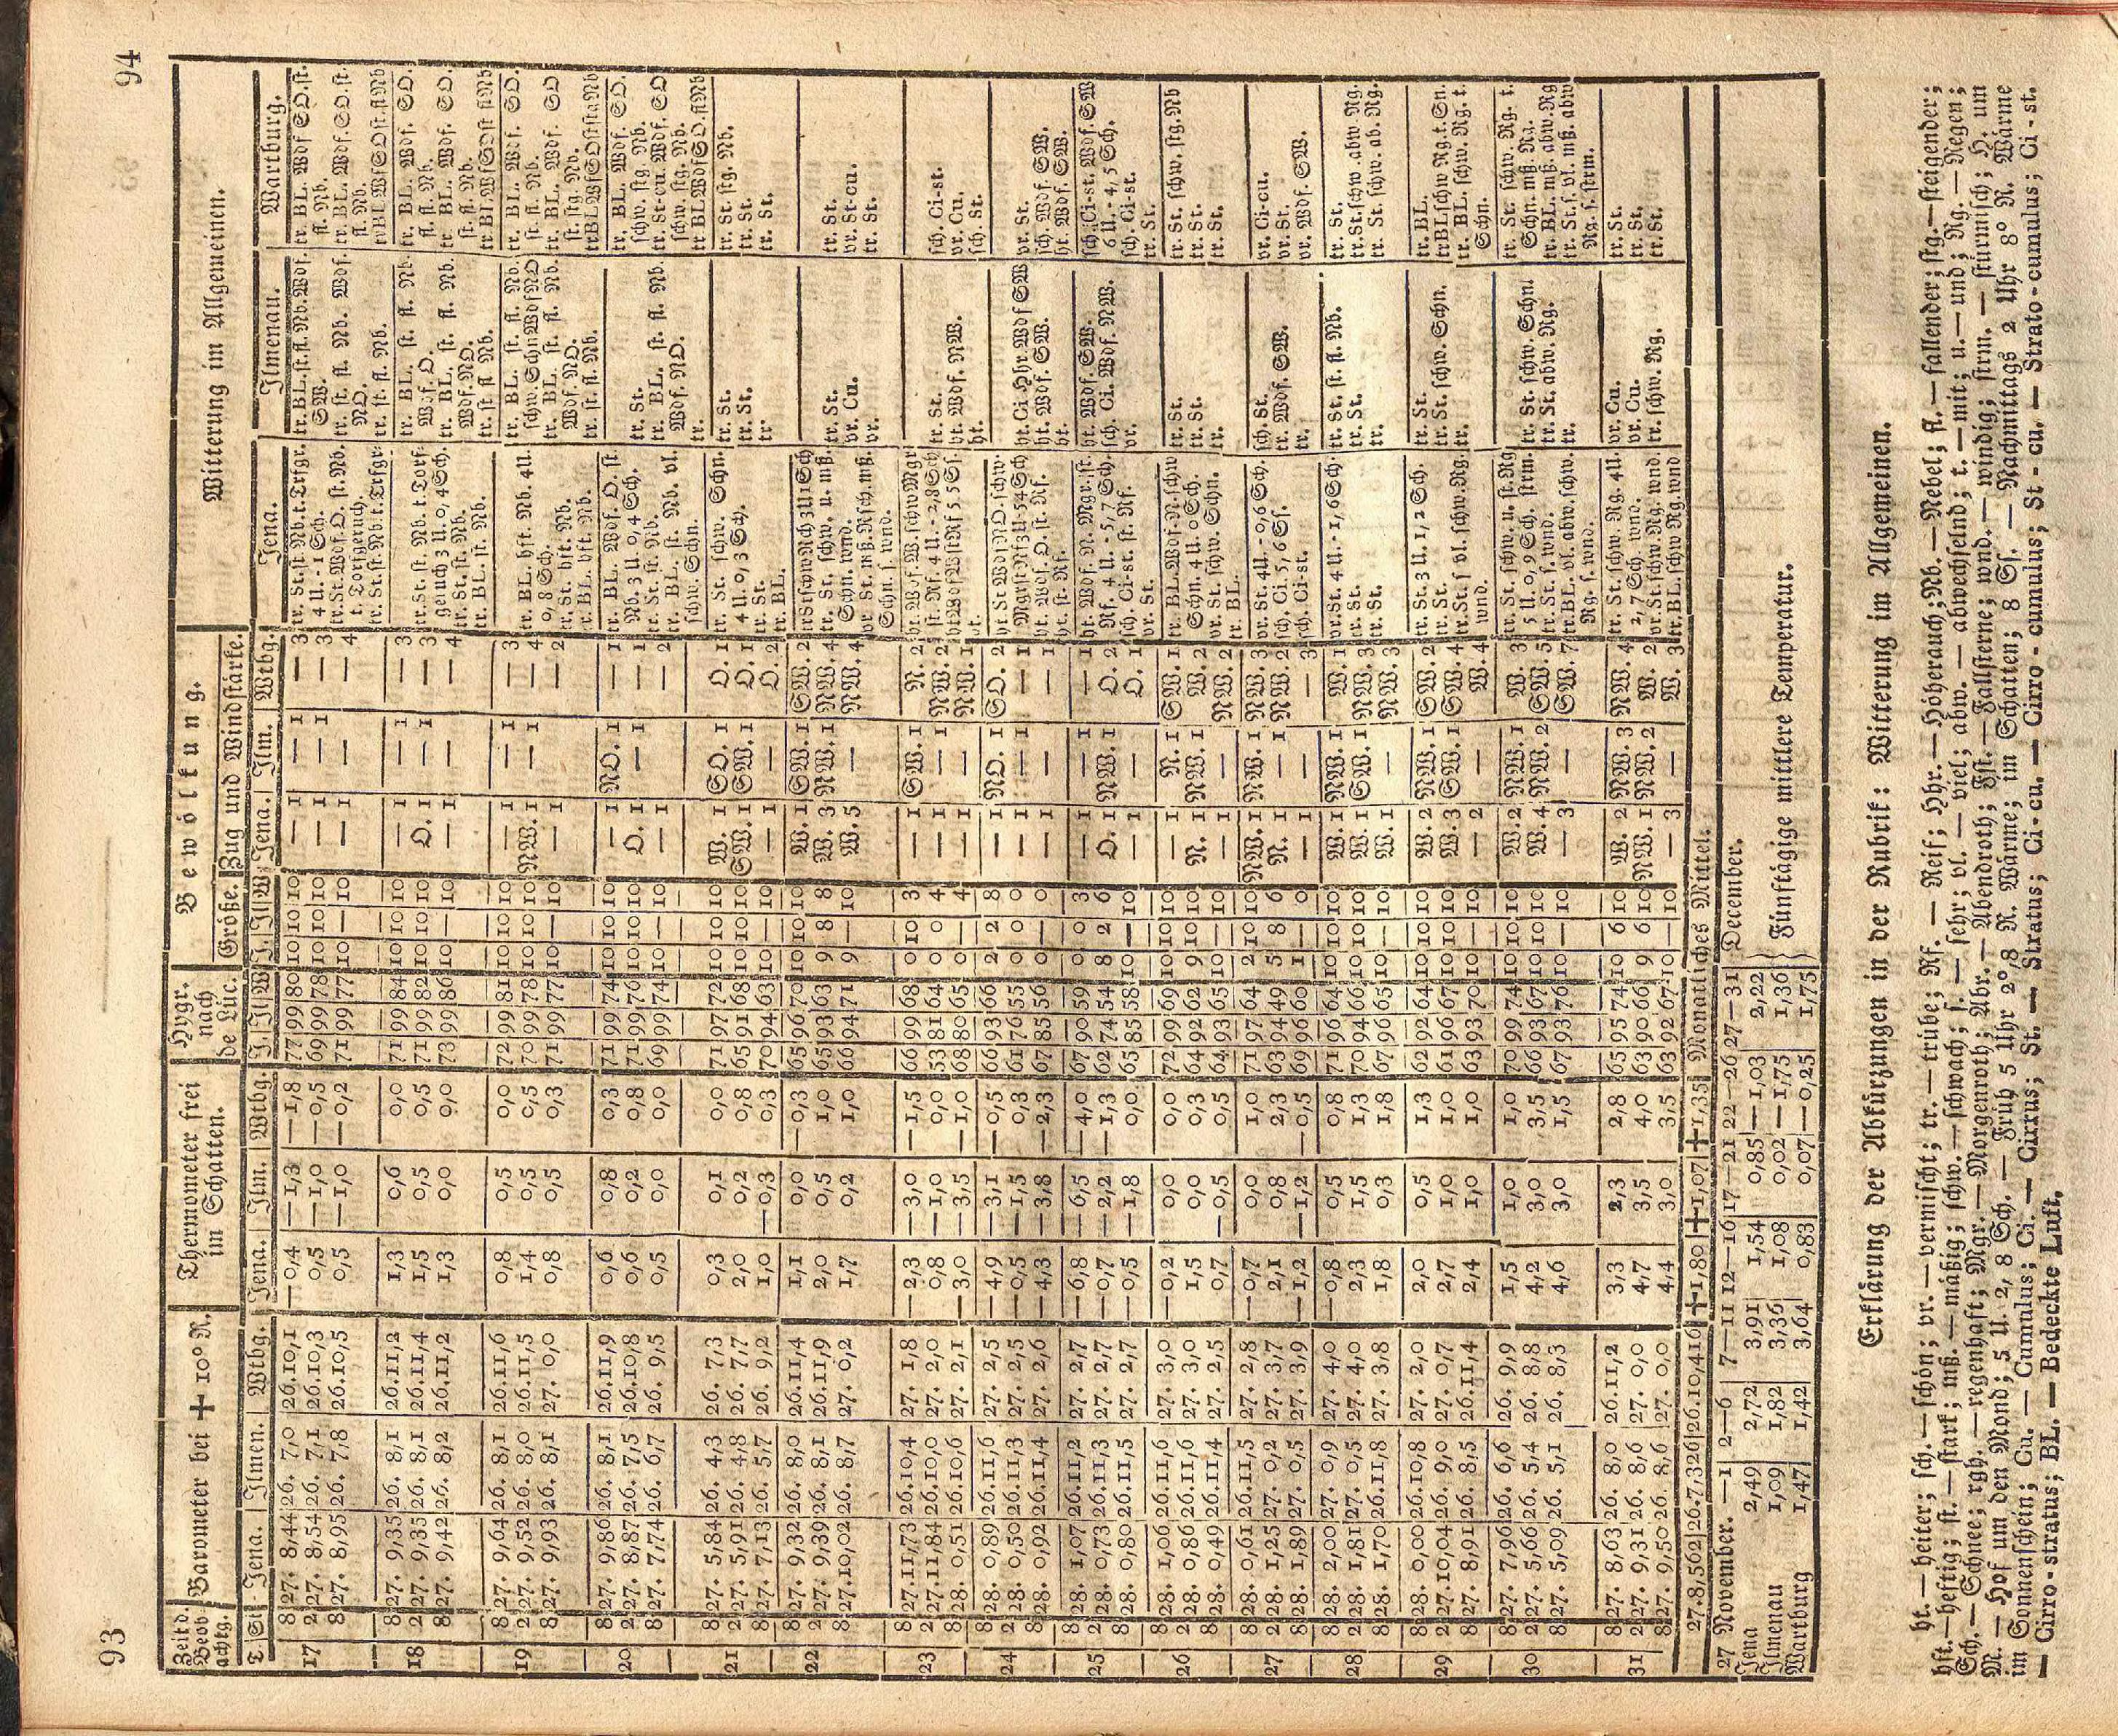 93
94
Zeit d. Beobachtg. Barometer bei + 10° R. Thermometer frei im Schatten. Hygr. nach de Lüc. Bewölkung. Witterung im Allgemeinen.
Größe. Zug und Windstärke.
T. St Jena. Ilmen. Wtbg. Jena. Ilm. Wtbg. J. J. W J. J. W Jena. Ilm. Wtbg. Jena. Ilmenau. Wartburg.
17 8 27. 8,44 26. 7,0 26.10,1 —0,4 —1,3 —1,8 77 99 80 10 10 10 — 1 — 1 — 3 tr. St. ſt Nb. t. Trfgr. 4 U. -1 Sch. tr. BL. ſt. fl. Nb. Wdf. SW. tr. BL. Wdf SO. ſt. fl. Nb.
2 27. 8,54 26. 7,1 26.10,3 0,5 —1,0 —0,5 69 99 78 10 10 10 — 1 — 1 — 3 tr. St. Wdf. O. ſt. Nb. t. Torfgeruch. tr. ſt. fl. Nb. Wdf. NO. tr. BL. Wdf. SO. ſt. fl. Nb.
8 27. 8,95 26. 7,8 26.10,5 0,5 —1,0 —0,2 71 99 77 10 — 10 — 1 — — 4 tr. St. ſt. Nb. t. Trfgr. tr. ſt. fl. Nb. trBL WfSOſt. fl Nb
18 8 27. 9,35 26. 8,1 26.11,2 1,3 0,6 0,0 71 99 84 10 10 10 — — 1 — 3 tr. St. ſt. Nb. t. Torfgeruch 3 U. 0,4 Sch. tr. BL. ſt. fl. Nb. Wdf. O. tr. BL. Wdf. SO. ſt. fl. Nb.
2 27. 9,35 26. 8,1 26.11,4 1,5 0,5 0,5 71 99 82 10 10 10 O. 1 — 1 — 3 tr. St. ſt. Nb. tr. BL. ſt. fl. Nb. Wdf. NO. tr. BL. Wdf. SO. ſt. fl. Nb.
8 27. 9,42 26. 8,2 26.11,2 1,3 0,0 0,0 73 99 86 10 — 10 — 1 — — 4 tr. BL. ſt. Nb. tr. ſt. fl. Nb. tr BL WſSOſt fl Nb
19 8 27. 9,64 26. 8,1 26.11,6 0,8 0,5 0,0 72 99 81 10 10 10 — — 1 — 3 tr. BL. hft. Nb. 4 U. 0,8 Sch. tr. BL. ſt. fl. Nb. ſchw. Schn Wdf NO tr. BL. Wdf. SO. ſt. fl. Nb.
2 27. 9,52 26. 8,0 26.11,5 1,4 0,5 0,5 70 99 78 10 10 10 NW. 1 — 1 — 4 tr. St. hft. Nb. tr. BL. ſt. fl. Nb. Wdf. NO. tr. BL. Wdf. SO ſt. ſtg. Nb.
8 27. 9,93 26. 8,1 27. 0,0 0,8 0,5 0,3 71 99 77 10 — 10 — 1 — — 2 tr. BL. hft. Nb. tr. ſt. fl. Nb.
20 8 27. 9,86 26. 8,1 26.11,9 0,6 0,8 0,3 71 99 74 10 10 10 — 1 NO. 1 — 1 tr. BL. Wdf. O. ſt. Nb. 3 U. 0,4 Sch. tr. St. tr. BL. Wdf. SO. ſchw. ſtg. Nb.
2 27. 8,87 26. 7,5 26.10,8 0,6 0,2 0,8 71 99 76 10 10 10 O. 1 — — 1 tr. St. ſt. Nb. tr. BL. ſt. fl. Nb. Wdf. NO. tr. St-cu. Wdf. SO ſchw. ſtg. Nb.
8 27. 7,74 26. 6,7 26. 9,5 0,5 0,0 0,0 69 99 74 10 — 10 — 1 — — 2 tr. BL. ſt. Nb. vl. ſchw. Schn. tr. tr BL Wdf SO. fl Nb
21 8 27. 5,84 26. 4,3 26. 7,3 0,3 0,1 0,0 71 97 72 10 10 10 W. 1 SO. 1 O. 1 tr. St. ſchw. Schn. 4 U. 0,3 Sch. tr. St. tr. St. ſtg. Nb.
2 27. 5,91 26. 4,8 26. 7,7 2,0 0,2 0,8 65 91 68 10 10 10 SW. 1 SW. 1 O. 1 tr. St. tr. St. tr. St.
8 27. 7,13 26. 5,7 26. 9,2 1,0 —0,3 0,3 70 94 63 10 — 10 — 1 — O. 2 tr. BL. tr. tr. St.
22 8 27. 9,32 26. 8,0 26.11,4 1,1 0,0 —0,3 65 96 70 10 10 10 W. 1 SW. 1 SW. 2 tr. St. 
2 27. 9,39 26. 8,1 26.11,9 2,0 0,5 1,0 65 93 63 9 8 8 W. 3 NW. 1 NW. 4 tr. St. ſchw. u. mß. Schn. wnd. vr. Cu. vr. St-cu.
8 27.10,02 26. 8,7 27. 0,2 1,7 0,2 1,0 66 94 71 9 — 10 W. 5 — NW. 4 vr. St. mß. Rſch. mß. Schn. ſ. wnd. vr. tr. St.
23 8 27.11,73 26.10,4 27. 1,8 —2,3 —3,0 —1,5 66 99 68 0 10 3 — 1 SW. 1 N. 2 ht. Wdf. W. ſchw Mgr ſt. Rf. 4 U. - 2,8 Sch tr. St. ſch. Ci-st.
2 27.11,84 26.10,0 27. 2,0 0,8 —1,0 0,0 53 81 64 0 0 4 — 1 — 1 NW. 2 ht. Wdf. NW. vr. Cu.
8 28. 0,51 26.10,6 27. 2,1 —3,0 —3,5 —1,0 68 80 65 0 — 4 — 1 — NW. 1 ht. ſch. St.
24 8 28. 0,89 26.11,6 27. 2,5 —4,9 —3,1 —0,5 66 93 66 2 2 8 — 1 NO. 1 SO. 2 ht. St Wdf NO. ſchw. ht. Ci Hhr. Wdf SW vr. St.
2 28. 0,50 26.11,3 27. 2,5 —0,5 —1,5 0,3 61 76 55 0 0 0 — 1 — 1 — 1 ht. Wdf. O. ſt. Rf. ht. Wdf. SW. ſch. Wdf. SW.
8 28. 0,92 26.11,4 27. 2,6 —4,3 —3,8 —2,3 67 85 56 0 — 0 — 1 — — 1 ht. ſt. Rf. ht. ht. Wdf. SW.
25 8 28. 1,07 26.11,2 27. 2,7 —6,8 —6,5 —4,0 67 90 59 0 0 3 — 1 — 1 — 1 ht. Wdf. N. Mgr. ſt. Rf. 4 U. - 5,7 Sch. ht. Wdf. SW. ſch. Ci-st. Wdf. SW 6 U. - 4,5 Sch.
2 28. 0,73 26.11,3 27. 2,7 —0,7 —2,2 —1,3 62 74 54 8 2 6 O. 1 NW. 1 O. 2 ſch. Ci-st. ſt. Rf. ſch. Ci. Wdf. NW. ſch. Ci-st.
8 28. 0,80 26.11,5 27. 2,7 —0,5 —1,8 0,0 65 85 58 10 — 10 — 1 — O. 1 vr. St. vr. tr. St.
26 8 28. 1,06 26.11,6 27. 3,0 —0,2 0,0 0,0 72 99 69 10 10 10 — 1 N. 1 SW. 1 tr. BL. Wdf. N. ſchw Schn. 4 U. 0 Sch. tr. St. tr. St. ſchw. ſtg. Nb
2 28. 0,86 26.11,6 27. 3,0 1,5 0,0 0,3 64 92 62 9 10 10 N. 1 NW. 1 W. 2 vr. St. ſchw. Schn. tr. St. tr. St.
8 28. 0,49 26.11,4 27. 2,5 0,7 —0,5 0,5 64 93 65 10 — 10 — 1 — NW. 2 tr. BL. tr. tr. St.
27 8 28. 0,61 26.11,5 27. 2,8 —0,7 0,0 1,0 71 97 64 2 10 10 NW. 1 NW. 1 NW. 3 vr. St. 4 U. - 0,6 Sch. ſch. St. vr. Ci-cu.
2 28. 1,25 27. 0,2 27. 3,7 2,1 0,8 2,3 63 94 49 5 8 6 N. 1 — 1 NW. 2 ſch. Ci. 5,6 Sſ. tr. Wdf. SW. vr. St.
8 28. 1,89 27. 0,5 27. 3,9 —1,2 —1,2 —0,5 69 96 60 1 — 0 — 1 — — 3 ſch. Ci-st. tr. vr. Wdf. SW.
28 8 28. 2,00 27. 0,9 27. 4,0 —0,8 0,5 0,8 71 96 64 10 10 10 W. 1 NW. 1 W. 1 vr. St. 4 U. - 1,6 Sch. tr. St. ſt. fl. Nb. tr. St.
2 28. 1,81 27. 0,5 27. 4,0 2,3 1,5 1,3 70 94 66 10 10 10 W. 1 SW. 1 NW. 3 tr. St. tr. St. tr. St. ſchw. abw. Rg.
8 28. 1,70 26.11,8 27. 3,8 1,8 0,3 1,8 67 96 65 10 — 10 W. 1 — NW. 3 tr. St. tr. tr. St. ſchw. ab. Rg.
29 8 28. 0,00 26.10,8 27. 2,0 2,0 0,5 1,3 62 92 64 10 10 10 W. 2 NW. 1 SW. 2 tr. St. 3 U. 1,2 Sch. tr. St. tr. BL.
2 27.10,04 26. 9,0 27. 0,7 2,7 1,0 1,0 61 96 67 10 10 10 W. 3 SW. 1 SW. 4 tr. St. tr. St. ſchw. Schn. tr BL ſchw Rg. t. Sn.
8 27. 8,91 26. 8,5 26.11,4 2,4 1,0 1,0 63 93 70 10 — 10 — 2 — W. 4 tr. St. ſ vl. ſchw. Rg. wnd. tr. tr. BL. ſchw. Rg. t. Schn.
30 8 27. 7,96 26. 6,6 26. 9,9 1,5 1,0 1,0 70 99 74 10 10 10 W. 2 NW. 1 W. 3 tr. St. ſchw. u. ſt. Rg 5 U. 0,9 Sch. ſtrm. tr. St. ſchw. Schn. tr. St. ſchw. Rg. t. Schn. mß. Rg.
2 27. 5,66 26. 5,4 26. 8,8 4,2 3,0 3,5 66 93 67 10 10 10 W. 4 NW. 2 SW. 5 tr. St. ſ. wnd. tr. St. abw. Rg. tr. BL. mß. abw. Rg
8 27. 5,09 26. 5,1 26. 8,3 4,6 3,0 1,5 67 93 76 10 — 10 — 3 — SW. 7 tr. BL. vl. abw. ſchw. Rg. ſ. wnd. tr. tr. St. ſ. vl. mß. abw Rg. ſ. ſtrm.
31 8 27. 8,63 26. 8,0 26.11,2 3,3 2,3 2,8 65 95 74 10 6 10 W. 2 NW. 3 NW. 4 tr. St. ſchw. Rg. 4 U. 2,7 Sch. wnd. vr. Cu. tr. St.
2 27. 9,31 26. 8,6 27. 0,0 4,7 3,5 4,0 63 90 66 9 6 10 NW. 1 NW. 2 W. 2 vr. St. ſchw Rg. wnd. vr. Cu. tr. St.
8 27. 9,50 26. 8,6 27. 0,0 4,4 3,0 3,5 63 92 67 10 — 10 — 3 — W. 3 tr. BL. ſchw Rg. wnd tr. ſchw. Rg. tr. St.
27.8,562 26.7,326 26.10,416 +1,80 +1,07 +1,35 Monatliches Mittel.
27 November. — 1 2—6 7—11 12—16 17—21 22—26 27—31 December.
Jena 2,49 2,72 3,91 1,54 0,85 —1,03 2,22
Ilmenau 1,09 1,82 3,36 1,08 0,02 —1,75 1,30 Fünftägige mittlere Temperatur.
Wartburg 1,47 1,42 3,64 0,83 0,07 —0,25 1,75
Erklärung der Abkürzungen in der Rubrik: Witterung im Allgemeinen.
ht. — heiter; ſch. — ſchön; vr. — vermiſcht; tr. — trübe; Rf. — Reif; Hhr. — Höherauch; Nb. — Nebel; fl. — fallender; ſtg. — ſteigender;
hft. — heftig; ſt. — ſtark; mß. — mäßig; ſchw. — ſchwach; ſ. — ſehr; vl. — viel; abw. — abwechſelnd; t. — mit; u. — und; Rg. — Regen;
Sch. — Schnee; rgh. — regenhaft; Mgr. — Morgenroth; Abr. — Abendroth; Fſt. — Fallſterne; wnd. — windig; ſtrm. — ſtürmiſch; H. um
M. — Hof um den Mond; 5 U. 2,8 Sch. — Früh 5 Uhr 2°,8 R. Wärme; im Schatten; 8 Sſ. — Nachmittags 2 Uhr 8° R. Wärme
im Sonnenſchein; Cu. — Cumulus; Ci. — Cirrus; St. — Stratus; Ci-cu. — Cirro-cumulus; St-cu. — Strato-cumulus; Ci-st.
— Cirro-stratus; BL. — Bedeckte Luft.